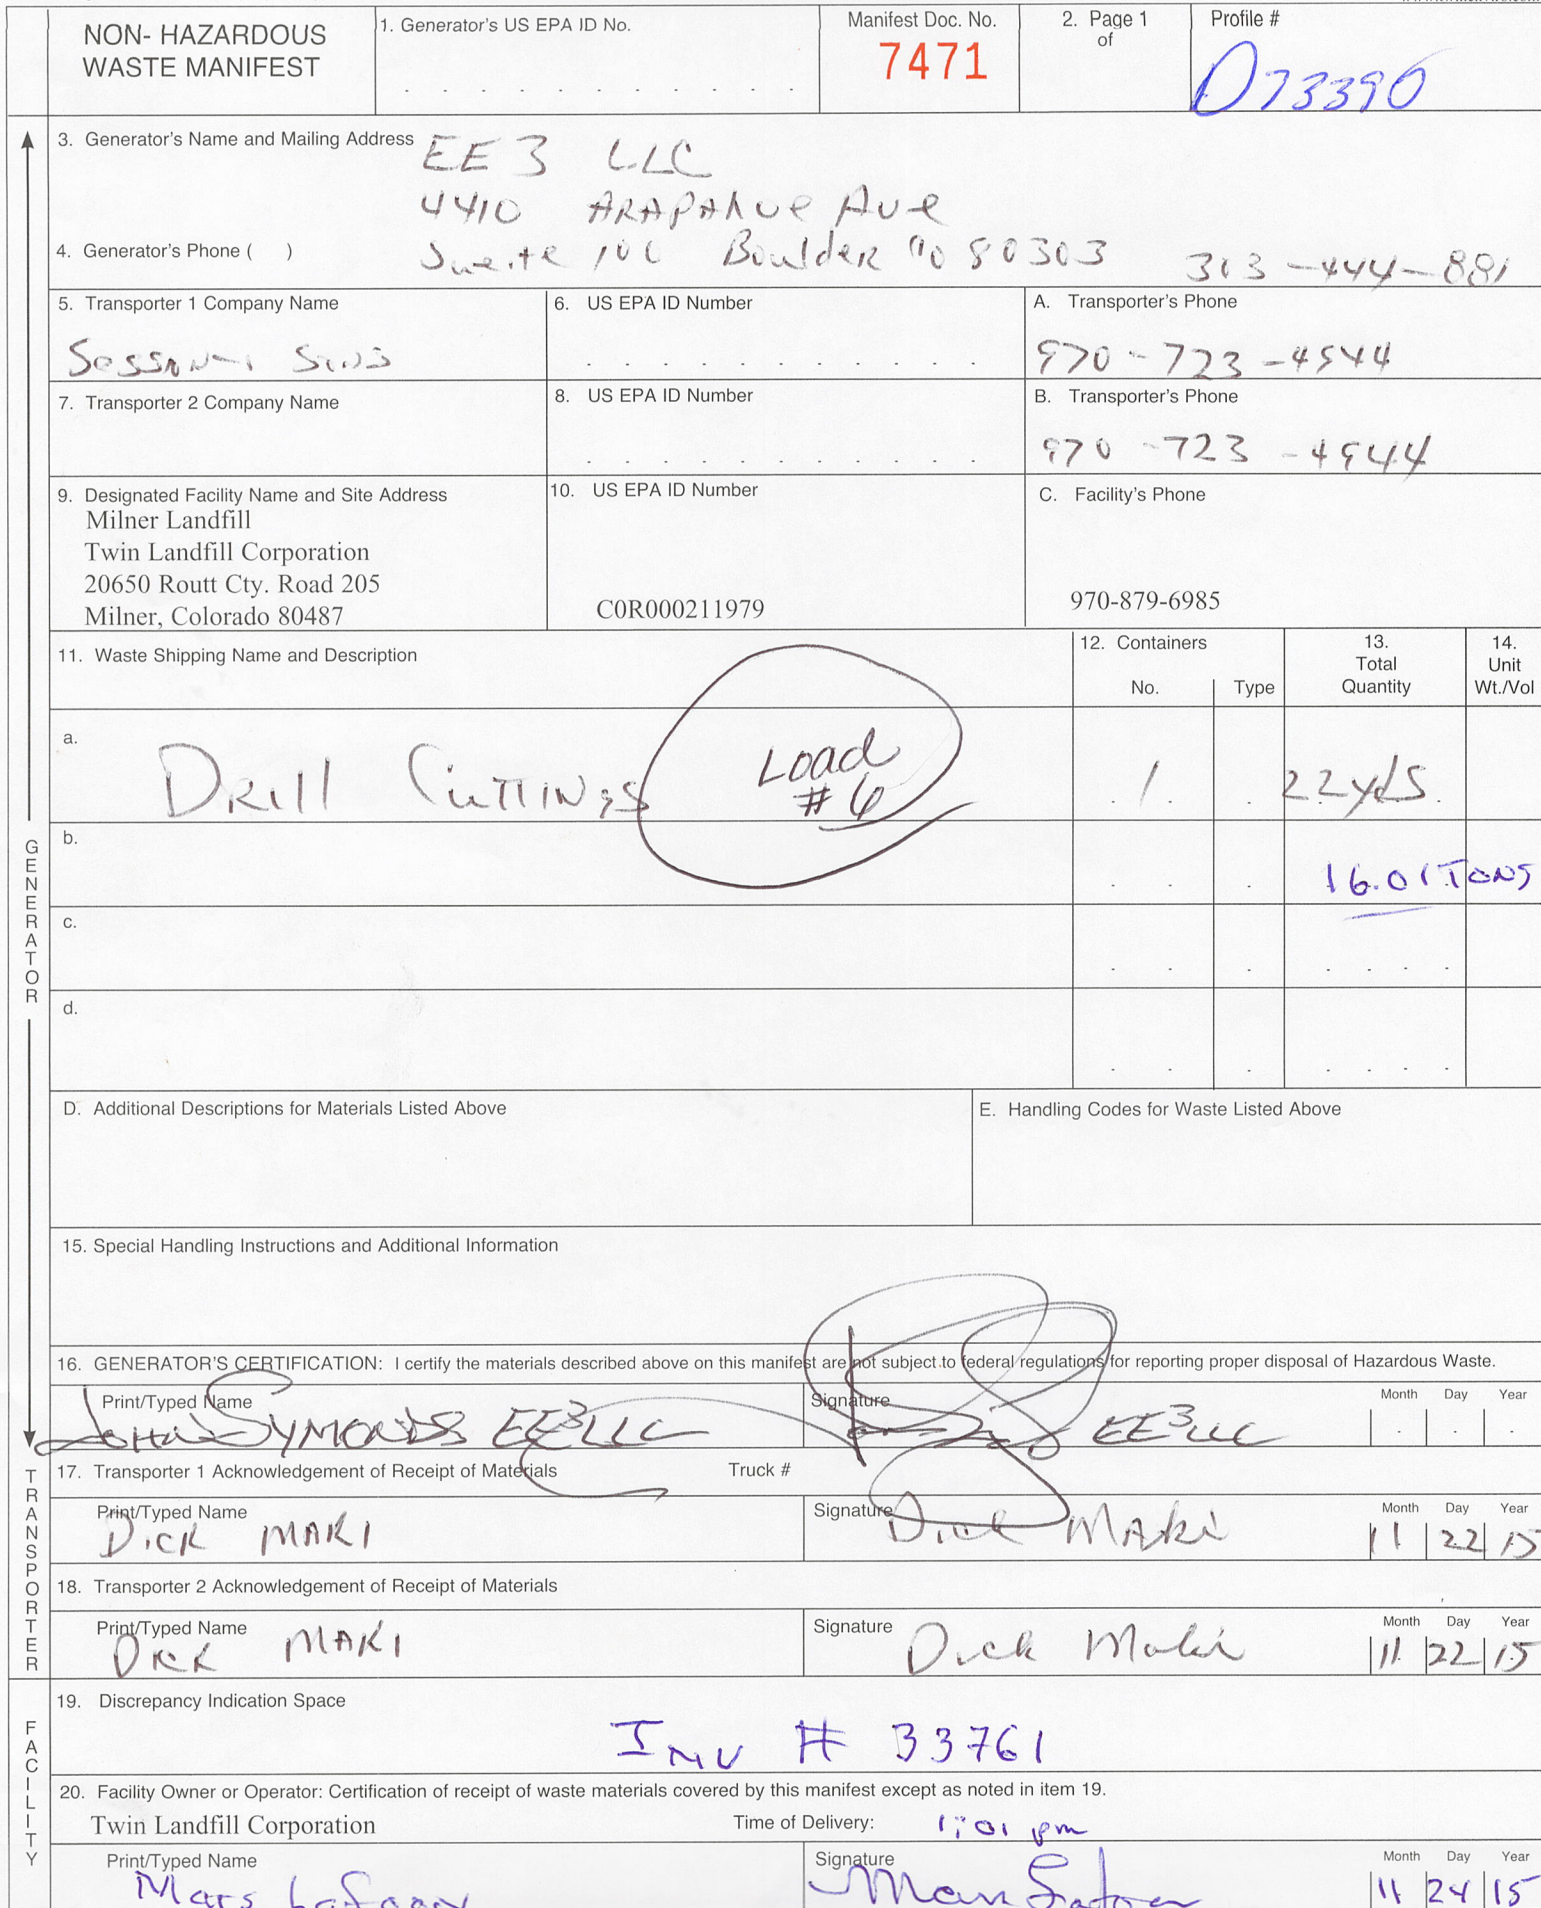 NON- HAZARDOUS
WASTE MANIFEST
1. Generator's US EPA ID No.
Manifest Doc. No.
7471
2. Page 1
of
Profile #
D73390
3. Generator's Name and Mailing Address
EE3 LLC
4410 ARAPAHOE AVE
4. Generator's Phone ( )
100 Boulder CO 80303 303-444-881
5. Transporter 1 Company Name
6. US EPA ID Number
A. Transporter's Phone
970-723-4944
7. Transporter 2 Company Name
8. US EPA ID Number
B. Transporter's Phone
970-723-4944
9. Designated Facility Name and Site Address
Milner Landfill
Twin Landfill Corporation
20650 Routt Cty. Road 205
Milner, Colorado 80487
10. US EPA ID Number
C0R000211979
C. Facility's Phone
970-879-6985
11. Waste Shipping Name and Description
12. Containers
No.
Type
13.
Total
Quantity
14.
Unit
Wt./Vol
a.
DRill CuTTINgS
Load
#6
1
22yds
b.
16.01 TONS
c.
d.
D. Additional Descriptions for Materials Listed Above
E. Handling Codes for Waste Listed Above
15. Special Handling Instructions and Additional Information
16. GENERATOR'S CERTIFICATION: I certify the materials described above on this manifest are not subject to federal regulations for reporting proper disposal of Hazardous Waste.
Print/Typed Name
JOHN SYMONDS EE3LLC
Signature
EE3LLC
Month Day Year
17. Transporter 1 Acknowledgement of Receipt of Materials
Truck #
Print/Typed Name
DICK MAKI
Signature
Dick Maki
Month Day Year
11 22 15
18. Transporter 2 Acknowledgement of Receipt of Materials
Print/Typed Name
DICK MAKI
Signature
Dick Maki
Month Day Year
11 22 15
19. Discrepancy Indication Space
INV # 33761
20. Facility Owner or Operator: Certification of receipt of waste materials covered by this manifest except as noted in item 19.
Twin Landfill Corporation
Time of Delivery:
1:01 pm
Print/Typed Name
Signature
Month Day Year
11 24 15
GENERATOR
TRANSPORTER
FACILITY